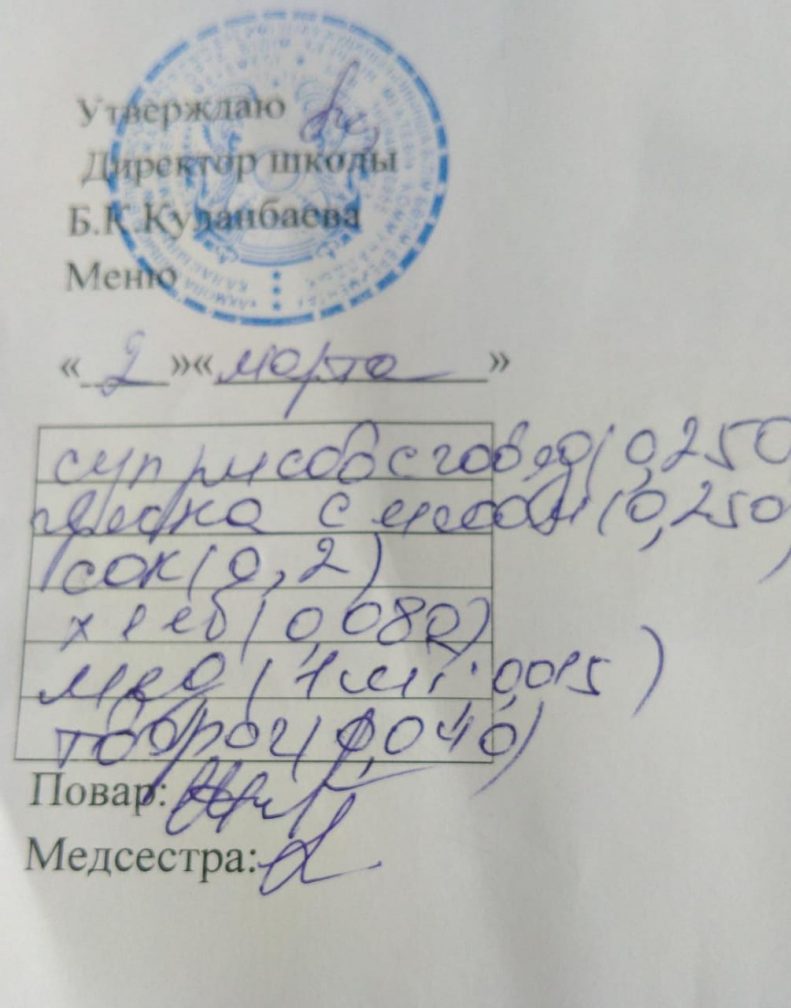 Утверждаю
Директор школы
Б.К.Куданбаева
Меню
«2»«марта»
суп рисов с говяд (0,250
с мясом (0,250)
сок (0,2)
хлеб (0,080)
мёд (1 шт. 0,015)
творог (0,040)
Повар:
Медсестра: